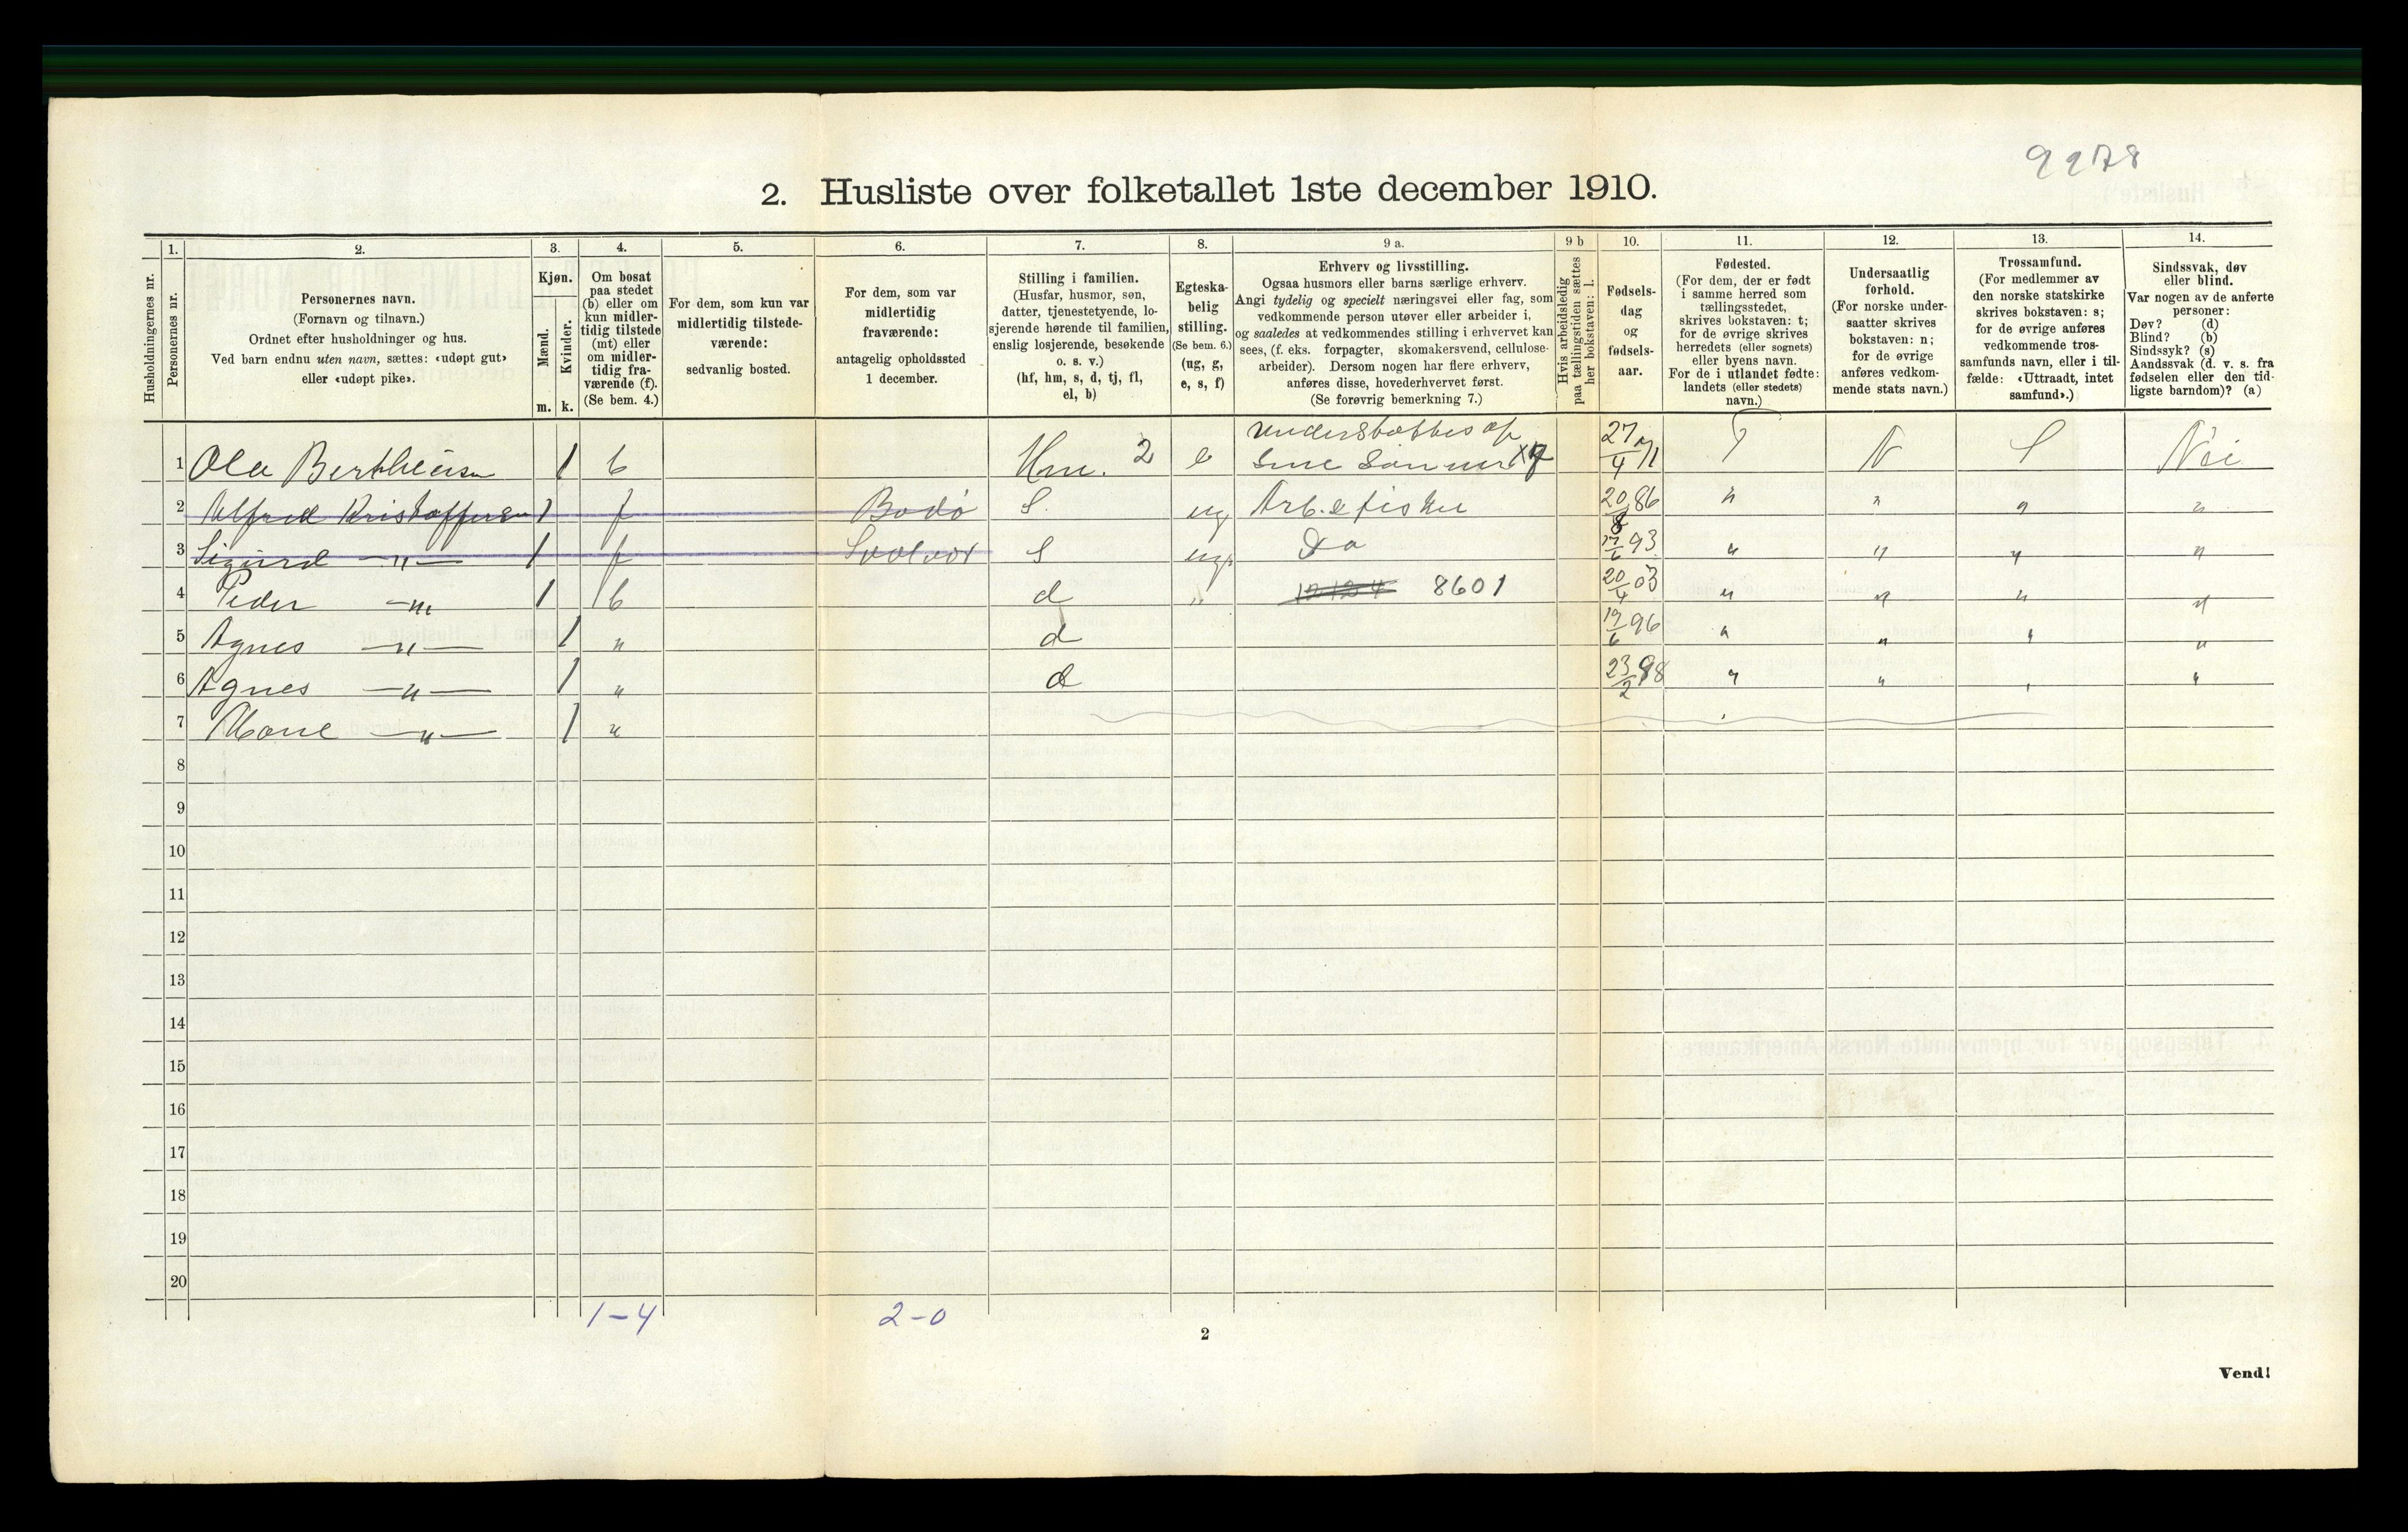 9278
2. Husliste over folketallet 1ste december 1910.
Husholdningernes nr.
1. Personernes nr.
2. Personernes navn.
(Fornavn og tilnavn.)
Ordnet efter husholdninger og hus.
Ved barn endnu uten navn, sættes: «udøpt gut»
eller «udøpt pike».
3. Kjøn.
Mænd. m.
Kvinder. k.
4. Om bosat
paa stedet
(b) eller om
kun midler-
tidig tilstede
(mt) eller
om midler-
tidig fra-
værende (f).
(Se bem. 4.)
5. For dem, som kun var
midlertidig tilstede-
værende:
sedvanlig bosted.
6. For dem, som var
midlertidig
fraværende:
antagelig opholdssted
1 december.
7. Stilling i familien.
(Husfar, husmor, søn,
datter, tjenestetyende, lo-
sjerende hørende til familien,
enslig losjerende, besøkende
o. s. v.)
(hf, hm, s, d, tj, fl,
el, b)
8. Egteska-
belig
stilling.
(Se bem. 6.)
(ug, g,
e, s, f)
9 a. Erhverv og livsstilling.
Ogsaa husmors eller barns særlige erhverv.
Angi tydelig og specielt næringsvei eller fag, som
vedkommende person utøver eller arbeider i,
og saaledes at vedkommendes stilling i erhvervet kan
sees, (f. eks. forpagter, skomakersvend, cellulose-
arbeider). Dersom nogen har flere erhverv,
anføres disse, hovederhvervet først.
(Se forøvrig bemerkning 7.)
9 b Hvis arbeidsledig
paa tællingstiden sættes
her bokstaven: l.
10. Fødsels-
dag
og
fødsels-
aar.
11. Fødested.
(For dem, der er født
i samme herred som
tællingsstedet,
skrives bokstaven: t;
for de øvrige skrives
herredets (eller sognets)
eller byens navn.
For de i utlandet fødte:
landets (eller stedets)
navn.)
12. Undersaatlig
forhold.
(For norske under-
saatter skrives
bokstaven: n;
for de øvrige
anføres vedkom-
mende stats navn.)
13. Trossamfund.
(For medlemmer av
den norske statskirke
skrives bokstaven: s;
for de øvrige anføres
vedkommende tros-
samfunds navn, eller i til-
fælde: «Uttraadt, intet
samfund».)
14. Sindssvak, døv
eller blind.
Var nogen av de anførte
personer:
Døv? (d)
Blind? (b)
Sindssyk? (s)
Aandssvak (d. v. s. fra
fødselen eller den tid-
ligste barndom)? (a)
understøttes af
1 Ola 1 b Hm. 2 e sine sønner 27/4 71 T N S Nei
2 Alfred Kristoffersen 1 f Bodø S. ug Arb. & fisker 20/8 86 " " " "
3 Sigurd —"— 1 f Svolvær S ug Do 93 " " " "
4 Peder —"— 1 b d " 8601 20/4 03 " " " "
5 Agnes —"— 1 " d 19/6 96 " " " "
6 Agnes —"— 1 " d 23/2 98 " " " "
7 —"— 1 "
8
9
10
11
12
13
14
15
16
17
18
19
20
1-4 2-0
2
Vend!